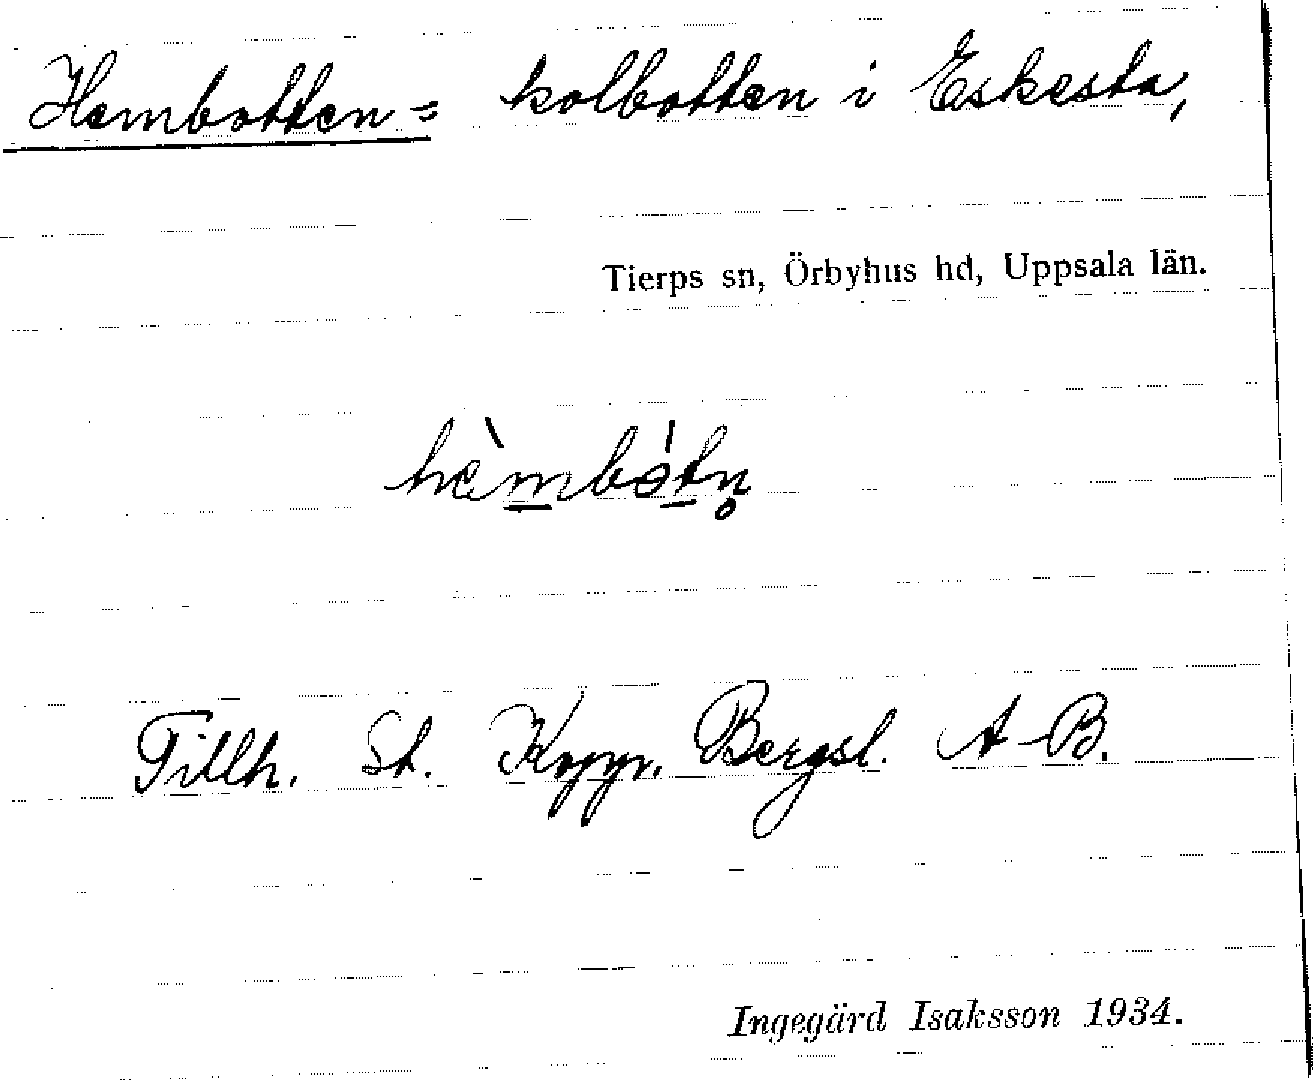 Hembotten = kolbotten i Eskesta,
Tierps sn, Örbyhus hd, Uppsala län.
hèmbótn̥
Tillh. St. Koppr. Bergsl. A-B.
Ingegärd Isaksson 1934.